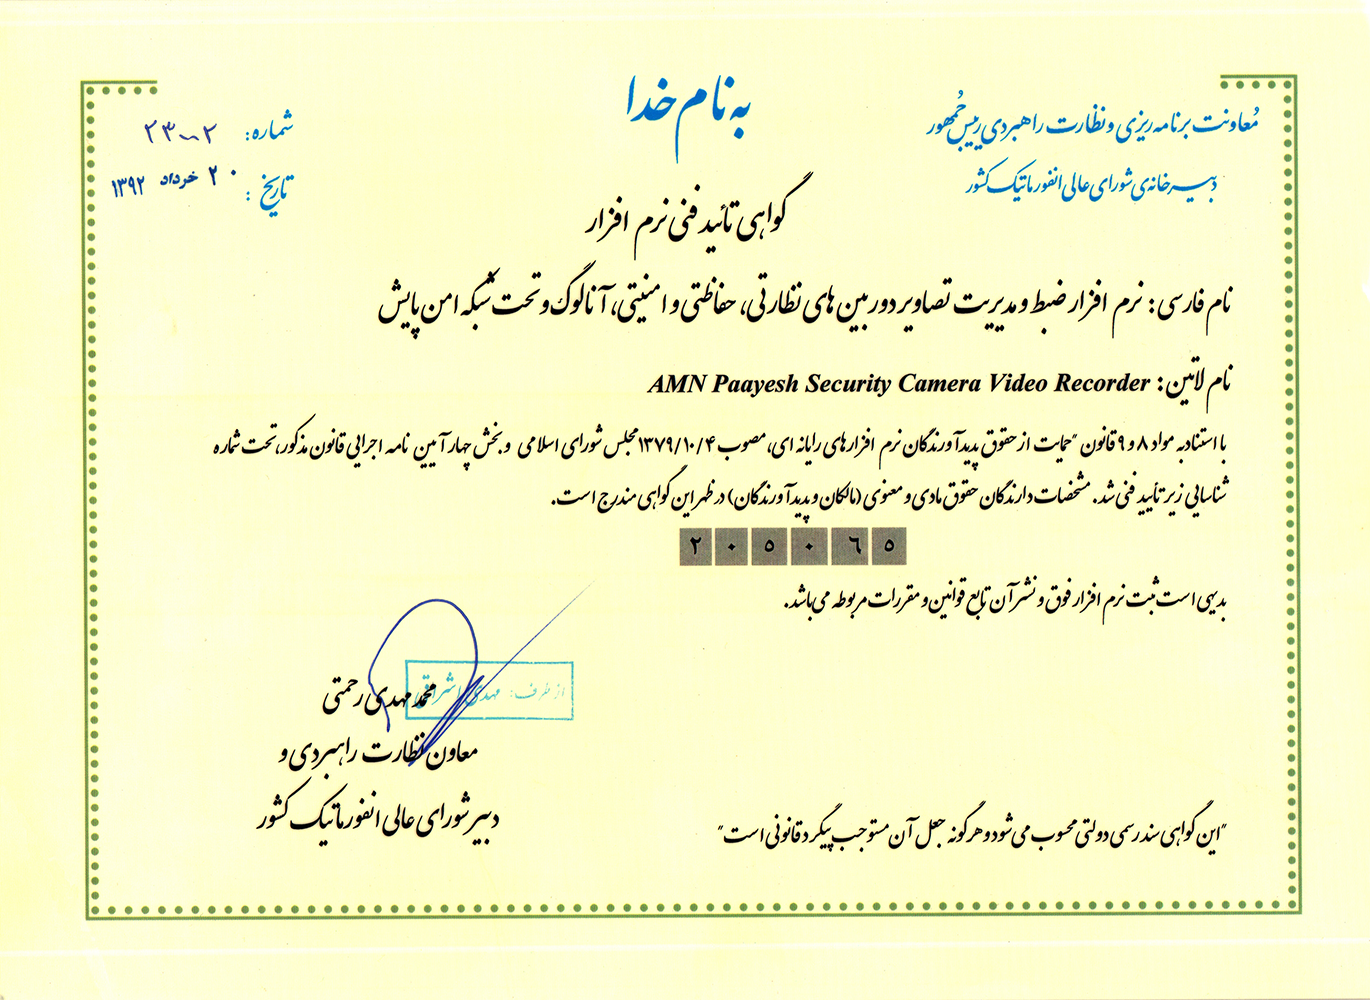 به نام خدا
معاونت برنامه ریزی و نظارت راهبردی رییس جمهور
دبیرخانه‌ی شورای عالی انفورماتیک کشور
شماره:
تاریخ: ۲۰ خرداد ۱۳۹۲
گواهی تائید فنی نرم افزار
نام فارسی: نرم افزار ضبط و مدیریت تصاویر دوربین های نظارتی، حفاظتی و امنیتی، آنالوگ و تحت شبکه امن پایش
نام لاتین: AMN Paayesh Security Camera Video Recorder
با استناد به مواد ۸ و ۹ قانون "حمایت از حقوق پدیدآورندگان نرم افزارهای رایانه ای، مصوب ۱۳۷۹/۱۰/۴ مجلس شورای اسلامی و بخش چهار آیین نامه اجرایی قانون مذکور، تحت شماره
شناسایی زیر تأیید فنی شد. مشخصات دارندگان حقوق مادی و معنوی (مالکان و پدیدآورندگان) در ظهر این گواهی مندرج است.
۲۰۵۰۶۵
بدیهی است ثبت نرم افزار فوق و نشر آن تابع قوانین و مقررات مربوطه می باشد.
از طرف: مهدی اشراقی
محمد مهدی رحمتی
معاون نظارت راهبردی و
دبیر شورای عالی انفورماتیک کشور
"این گواهی سند رسمی دولتی محسوب می شود و هرگونه جعل آن مستوجب پیگرد قانونی است"